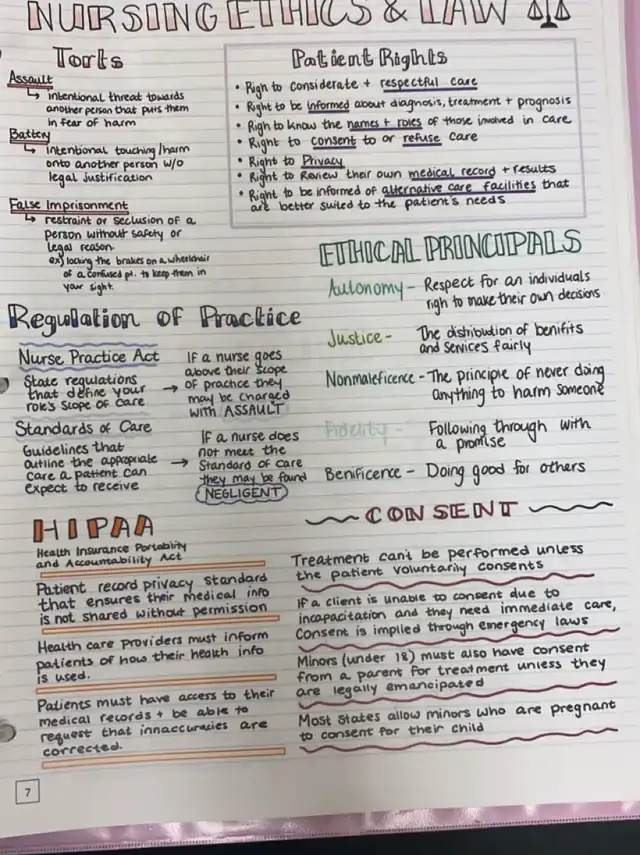 NURSING ETHICS & LAW
Torts
Assault
↳ intentional threat towards
another person that puts them
in fear of harm
Battery
↳ Intentional touching/harm
onto another person w/o
legal justification
False Imprisonment
↳ restraint or seclusion of a
person without safety or
legal reason.
ex) locking the brakes on a wheelchair
of a confused pt. to keep them in
your sight.
Patient Rights
• Righ to considerate + respectful care
• Right to be informed about diagnosis, treatment + prognosis
• Righ to know the names + roles of those involved in care
• Right to consent to or refuse care
• Right to Privacy
• Right to Review their own medical record + results
• Right to be informed of alternative care facilities that
are better suited to the patient's needs
ETHICAL PRINCIPALS
Autonomy - Respect for an individuals
righ to make their own decisions
Justice - The distribution of benifits
and services fairly
Nonmaleficence - The principle of never doing
anything to harm someone
Fidelity - Following through with
a promise
Benificence - Doing good for others
Regulation of Practice
Nurse Practice Act
State regulations
that define your
role's scope of care
→ If a nurse goes
above their scope
of practice they
may be charged
with ASSAULT
Standards of Care
Guidelines that
outline the appropriate
care a patient can
expect to receive
→ If a nurse does
not meet the
Standard of care
they may be found
NEGLIGENT
HIPAA
Health Insurance Portability
and Accountability Act
Patient record privacy standard
that ensures their medical info
is not shared without permission
Health care providers must inform
patients of how their health info
is used.
Patients must have access to their
medical records + be able to
request that innaccuracies are
corrected.
CONSENT
Treatment can't be performed unless
the patient voluntarily consents
If a client is unable to consent due to
incapacitation and they need immediate care,
Consent is implied through emergency laws
Minors (under 18) must also have consent
from a parent for treatment unless they
are legally emancipated
Most States allow minors who are pregnant
to consent for their child
7